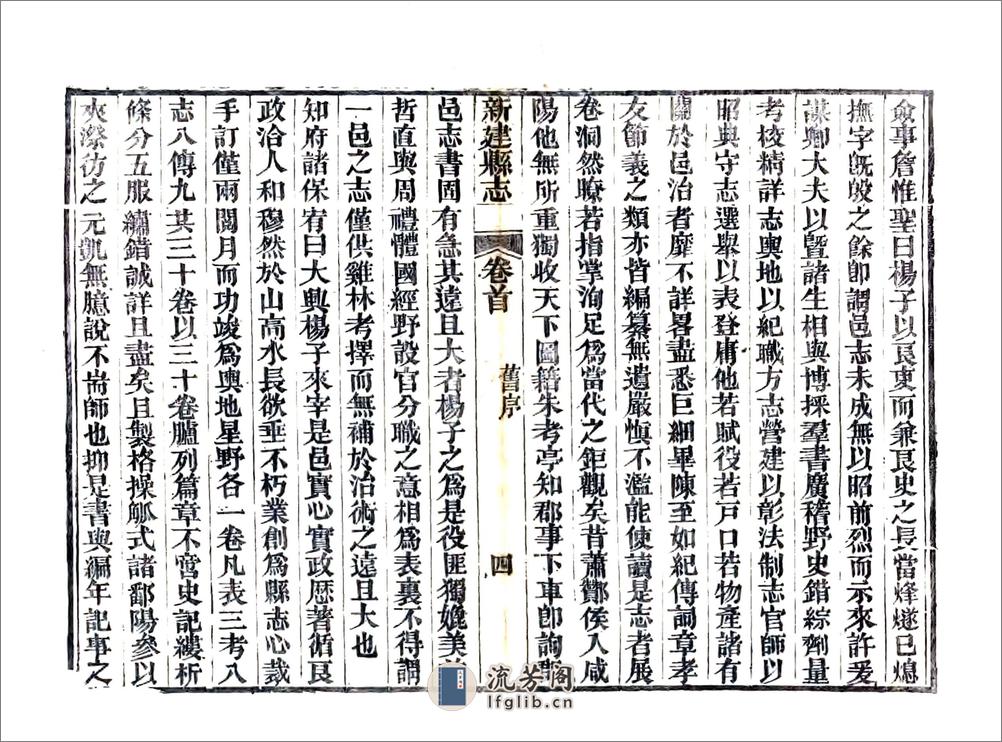 僉事詹惟聖曰楊子以良吏而兼良史之長當烽燧已熄
撫字旣皎之餘卽謂邑志未成無以昭前烈而示來許爰
謀鄉大夫以曁諸生相與博採羣書廣稽野史錯綜劑量
考校精詳志輿地以紀職方志營建以彰法制志官師以
昭典守志選舉以表登庸他若賦役若戸口若物產諸有
關於邑治者靡不詳畧盡悉巨細畢陳至如紀傳詞章孝
友節義之類亦皆編纂無遺嚴愼不濫能使讀是志者展
卷洞然瞭若指掌洵足爲當代之鉅觀矣昔蕭酇侯入咸
陽他無所重獨收天下圖籍朱考亭知郡事下車卽詢郡
新建縣志 卷首 舊序 四
邑志書固有急其遠且大者楊子之爲是役匪獨媲美前
哲直與周禮體國經野設官分職之意相爲表裏不得謂
一邑之志僅供雞林考擇而無補於治術之遠且大也
知府諸保宥曰大興楊子來宰是邑實心實政歷著循良
政治人和穆然於山高水長欲垂不朽業創爲縣志心裁
手訂僅兩閱月而功竣爲輿地星野各一卷凡表三考八
志八傳九其三十卷以三十卷臚列篇章不啻史記縷析
條分五服繡錯誠詳且盡矣且製格操觚式諸鄱陽參以
夾漈彷之元凱無臆說不耑師也抑是書與編年記事之
流芳阁
lfglib.cn